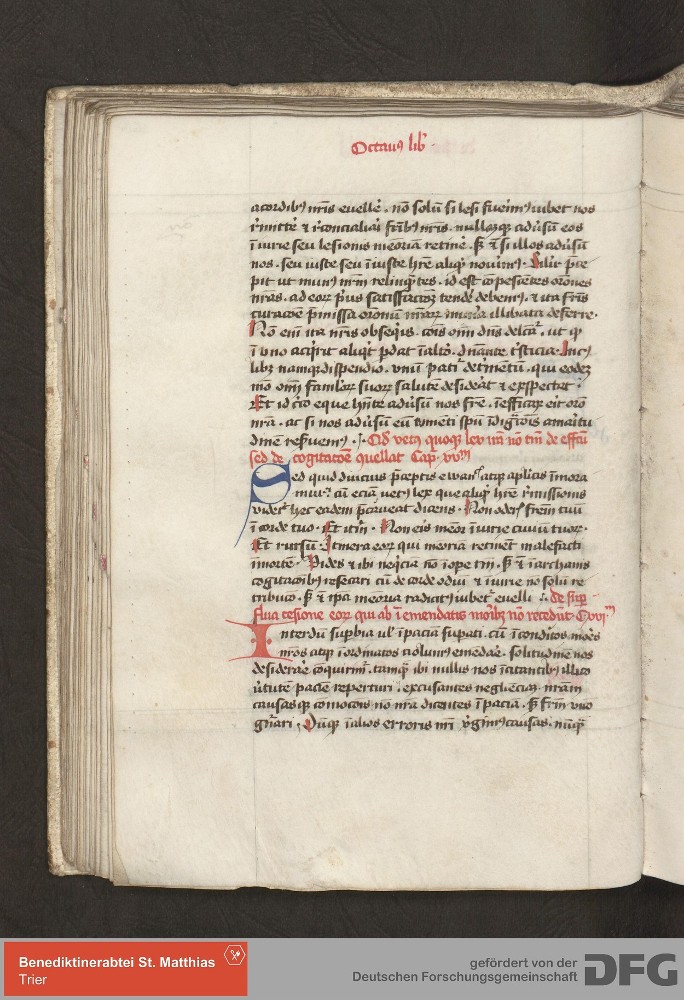 Octauꝰ lib̾
acordibꝫ nr̄is euelle̾ . nō solū si lesi fueim̾ꝫ iubet nos
r̾mitte̾ ⁊ r̾conciliari fr̄ibꝫ nr̄is . nullāqꝫ adu̾sū eos
ī iurie seu lesionis meoriā retine̾ . sꝫ ⁊ si illos adu̾sū
nos . seu iuste seu ī iuste hr̄e aliqͥd nouim̾ꝫ .
pit ut mun̾ꝫ nr̄m relinqn̄tes . id est cōpesce̅tes or̄ones
nr̄as . ad eoꝝ p̾us satisfactōꝫ tende̾ debem̾ꝫ . ⁊ ita fr̄is
curacōe p̾missa or̄onum nr̄aꝝ mun̾a illibata deferre .
Nō em̄ ita nr̄is obseqͥis . cōis om̄i dn̄s delcāt̾ . ut qd̾
ī vno acqͥrit aliqͥt p̱dat ī alto . dn̄ante t̾sticia . In cꝫ
libꝫ namqꝫ dispendio . vnū pati᷑ det̾mētū . qui eodeꝫ
mō om̄i famlōꝝ suoꝝ salute desiderat ⁊ exspectat .
Et id cͥco eque hn̄te adu̾sū nos fr̄e . īefficax erit or̄o
nr̄a . ac si nos adu̾sū eū
dine res̾uem̾ꝫ . Qd̾ vetꝰ quoqꝫ lex irā nō tm̄ de effectu
sed de cogitacōe euellat Cap. xv.
Sed quid diucius p̾ceptis ewan᷑ꝉ atqꝫ aplicis īmora
mur . cū eciā vetꝰ lex que aliqͥd hr̄e r̾missionis
vide᷑ . hec eadem p̾caueat dicens . Non oder̾ fr̄em tuū
ī corde tuo . Et itm̄ . Non eis meor̾ ī iurie ciuiū tuoꝝ .
Et rursū . Itinera eoꝝ qui meoriā retinēt malefacti
ī mortē . Vides ⁊ ibi neqͥcia nō ī ope tm̄ . sꝫ ⁊ ī archanis
cogitacōibꝫ resecari cū de corde odiū ⁊ ī iurie nō solū re
tribucō . sꝫ ⁊ ip̄a meoria radicitꝫ iubet᷑ euelli . de sup̱
flua cesione eoꝝ qui ab ī emendatis moribꝫ nō recedūt . C. xvi.
Interdū sup̱bia ul̾ ī paciā sup̱ati . cū ī conditos mores
nr̄os atqꝫ ī ordinatos nolum̾ꝫ emēdare . solitudinē nos
desiderare cōquirim᷑ . tamqͣꝫ ibi nullis nos īcitantibꝫ illico
v̾tutē paciē reperturi . excusantes negligēciaꝫ nr̄am
causasqꝫ cōmocōis nō nr̄a dicentes ī pacīa . sꝫ fr̄m vicio
gn̾ari . Dumqꝫ ī alios erroris nr̄i v̾gim̾ꝫ causas . nūqͣꝫ
Benediktinerabtei St. Matthias
Trier
gefördert von der
Deutschen Forschungsgemeinschaft
DFG